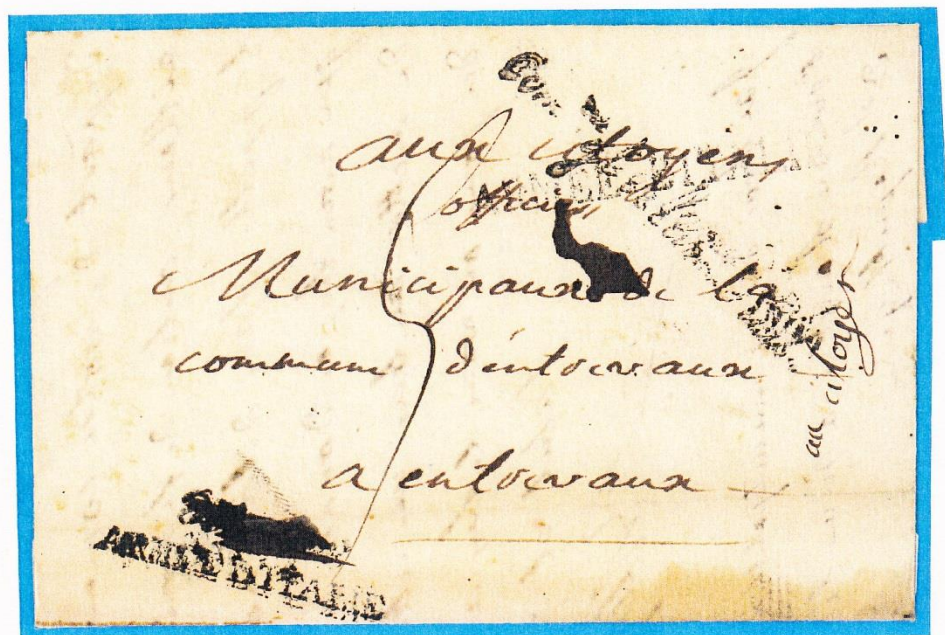 aux citoyens
officiers
Municipaux de la
commune d'entrevaux
a entrevaux
au citoyen
ARMÉE D'ITALIE